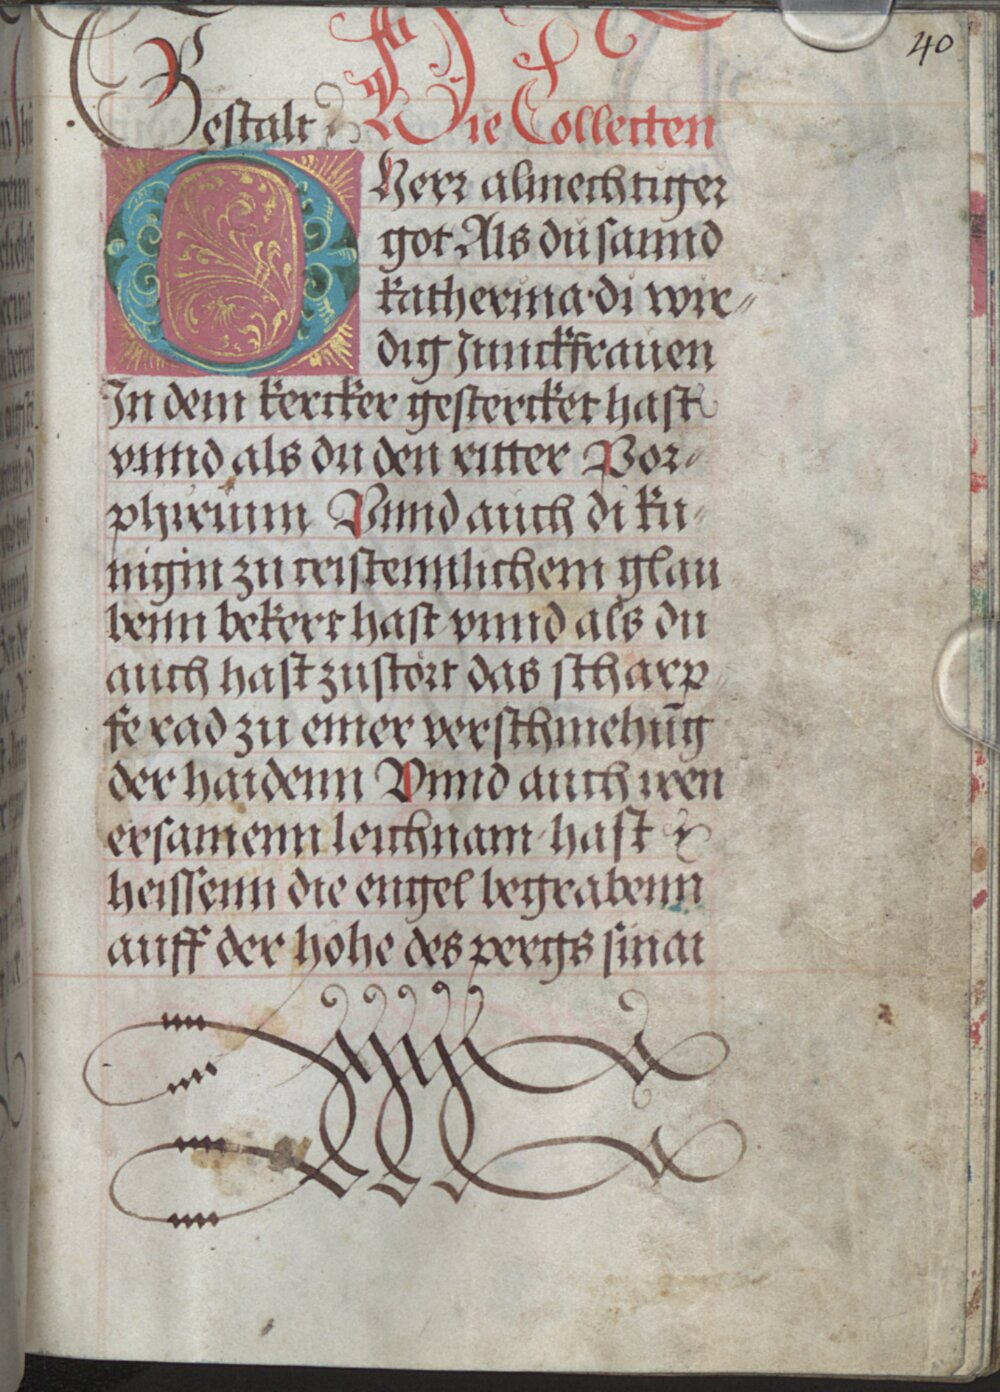 40
Gestalt Die Collecten
O Herr almechtiger
got Als du sannd
katherina di wir-
dig Junckfrauen
In dem kercker gesterckt hast
vnnd als du den ritter Por-
phirium Vnnd auch di ku-
nigin zu cristennlichem glau
benn bekert hast vnnd als du
auch hast zustört das scharp-
fe rad zu einer verschmehūg
der haidenn Vnnd auch iren
ersamenn leichnam hast
heissenn die engel begrabenn
auff der hohe des pergs sinai